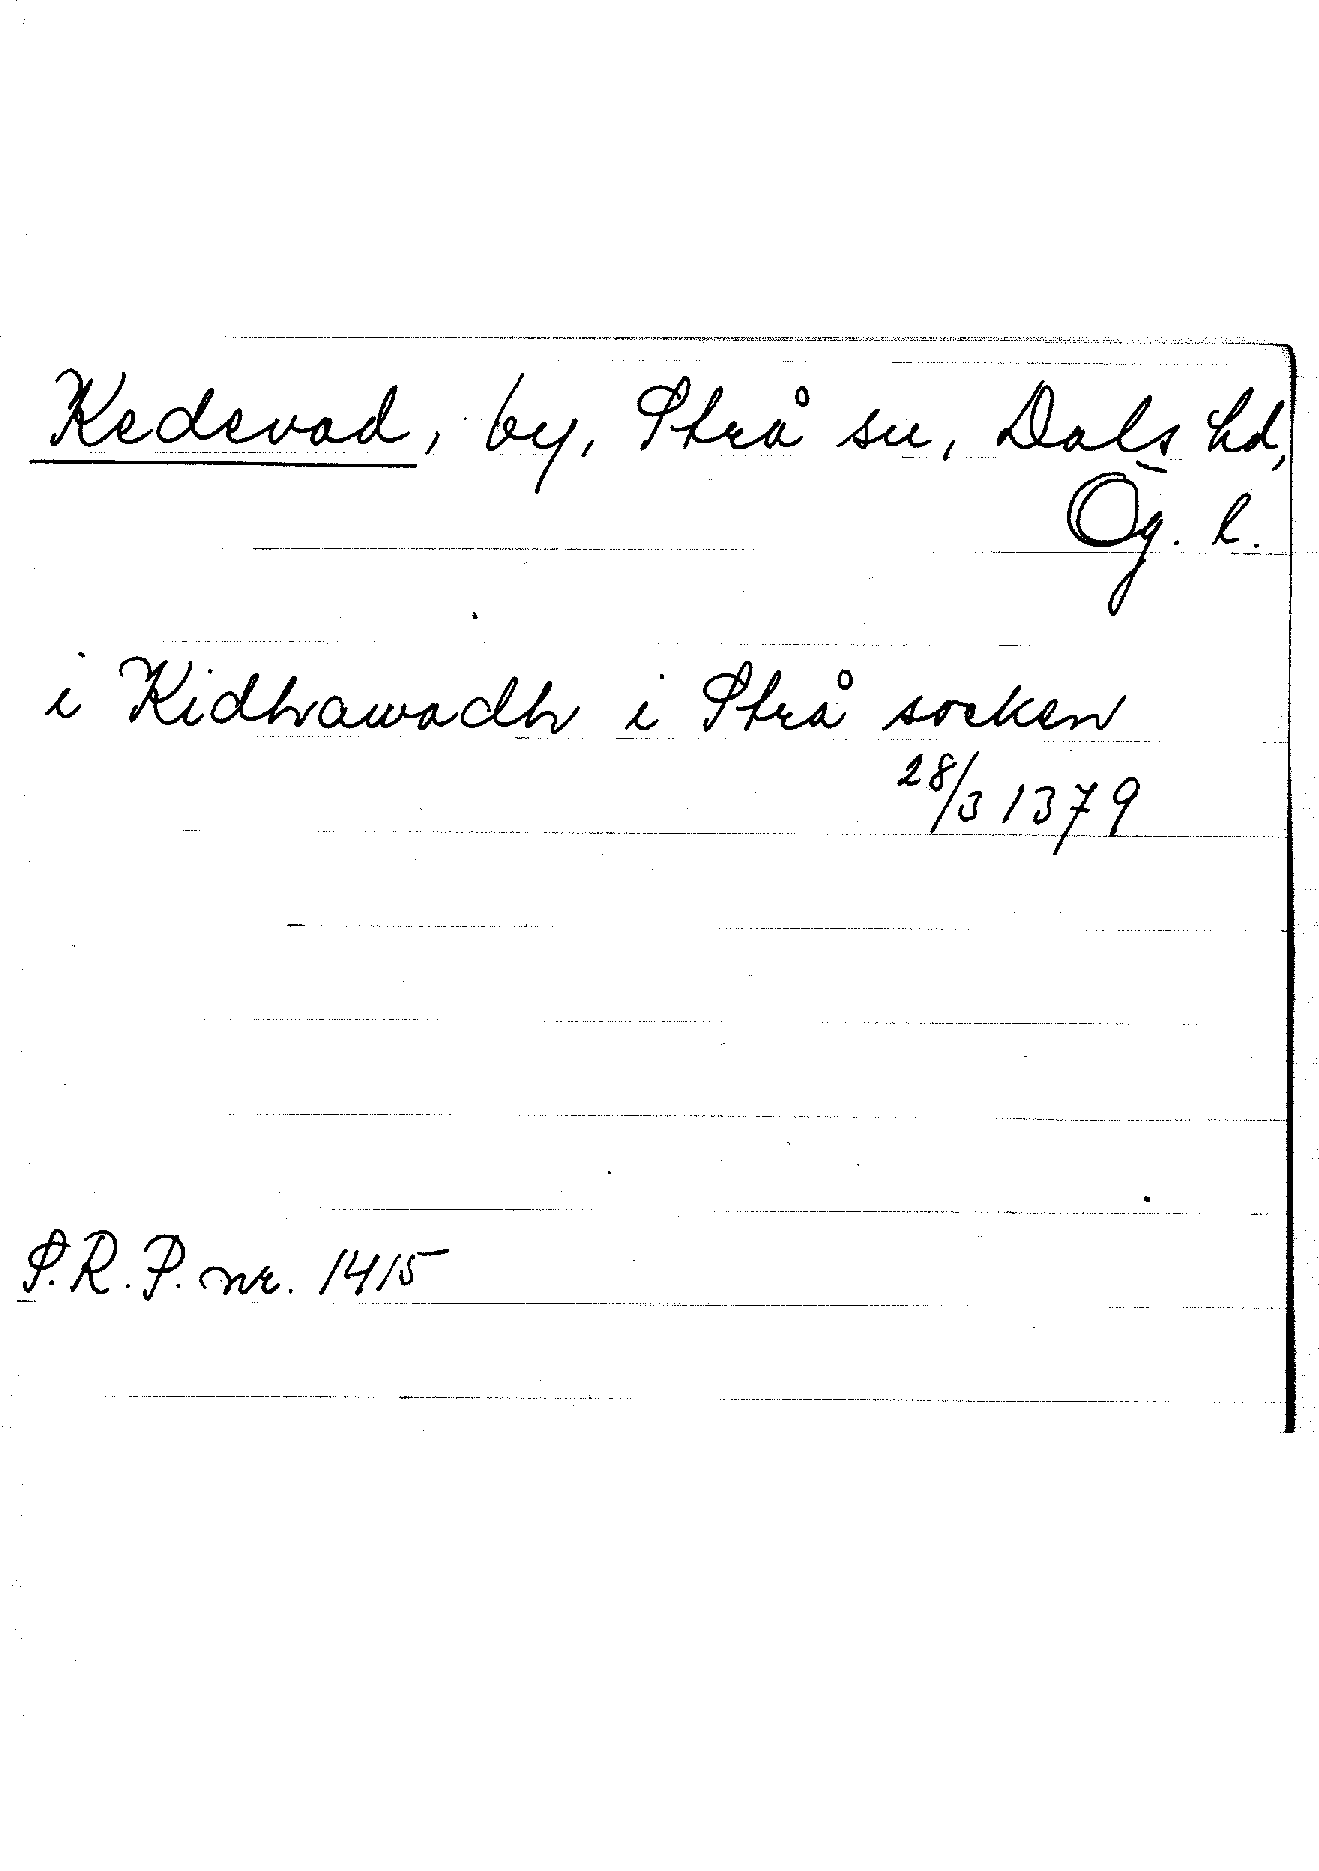 Kedevad, by, Strå sn, Dals hd,
Ög. l.
i Kidhrawadh i Strå socken
28/3 1379
S.R.P. nr. 1415